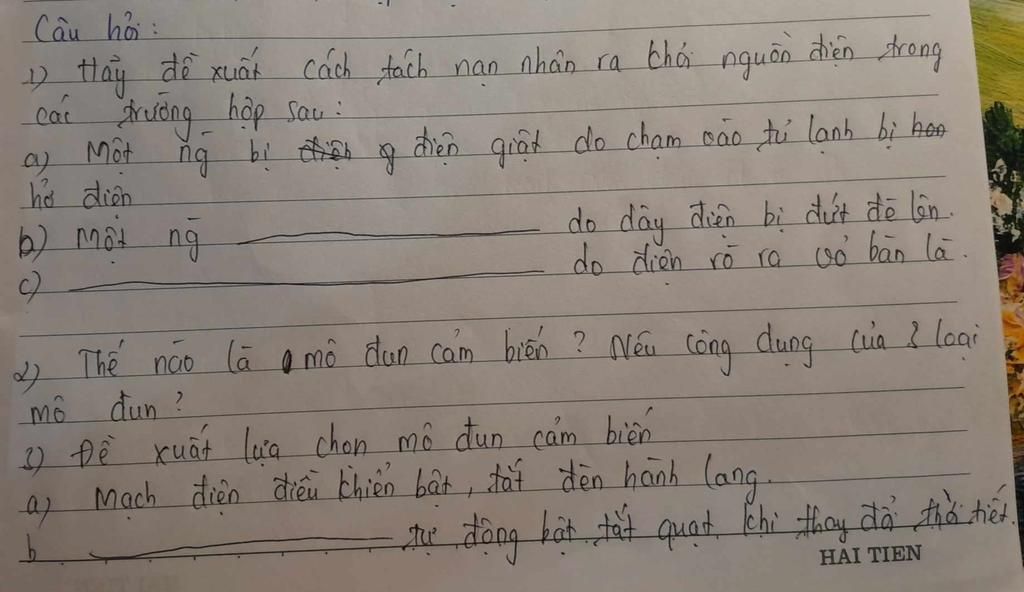 Câu hỏi:
1) Hãy đề xuất cách tách nạn nhân ra khỏi nguồn điện trong
các trường hợp sau:
a) Một ng̃ bị điện giật do chạm vào tủ lạnh bị
hở điện
b) Một ng̃ ——— do dây điện bị đứt đè lên.
c) ——— do điện rò ra vỏ bàn là.
2) Thế nào là mô đun cảm biến? Nêu công dụng của 3 loại
mô đun?
3) Đề xuất lựa chọn mô đun cảm biến
a) Mạch điện điều khiển bật, tắt đèn hành lang.
b ——— tự động bật tắt quạt khi thay đổi thời tiết.
HAI TIEN